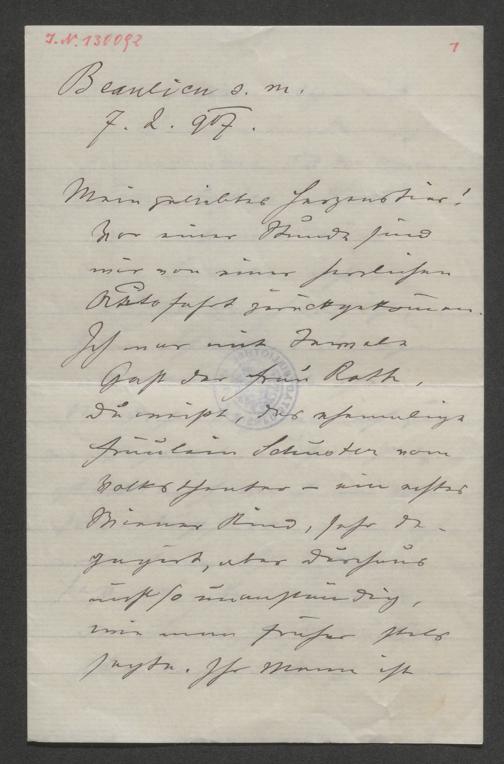 J. N. 130092
1
Beaulieu s. m.
7. 2. 907.
Mein geliebtes Herzenstier!
Vor einer Stunde sind
wir von einer herrlichen
Autofahrt zurückgekommen.
Ich war mit
Gast der Frau Roth,
Du weißt, das ehemalige
Fräulein Schuster vom
Volkstheater – ein echtes
Wiener Kind, sehr de-
gagirt, aber durchaus
nicht so unanständig,
wie man früher stets
sagte. Ihr Mann ist